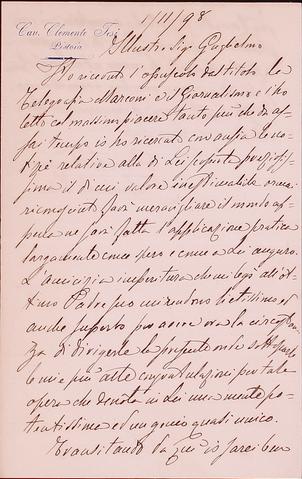 1/11/98
Cav. Clemente Tesi
Pistoia
Illustre Sig. Guglielmo
Ho ricevuto l'opuscolo dal titolo la
Telegrafia Marconi e il Giornalismo e l'ho
letto col massimo piacere tanto più che da as-
sai tempo io ho ricercato con ansia le no-
tizie relative alla di Lei scoperta preziosis-
sima il di cui valore inestimabile ormai
riconosciuto farà meravigliare il mondo ap-
pena ne sarà fatta l'applicazione pratica
largamente come spero e come a Lei auguro.
L'amicizia imperitura che mi legò all'ot-
timo Padre suo mi rendono lietissimo ed
anche superbo per avere ora la circostan-
za di dirigerle la presente onde
le mie più alte congratulazioni per tale
opera che denota in Lei una mente po-
tentissima ed un genio quasi unico.
Transitando da qui io sarei ben